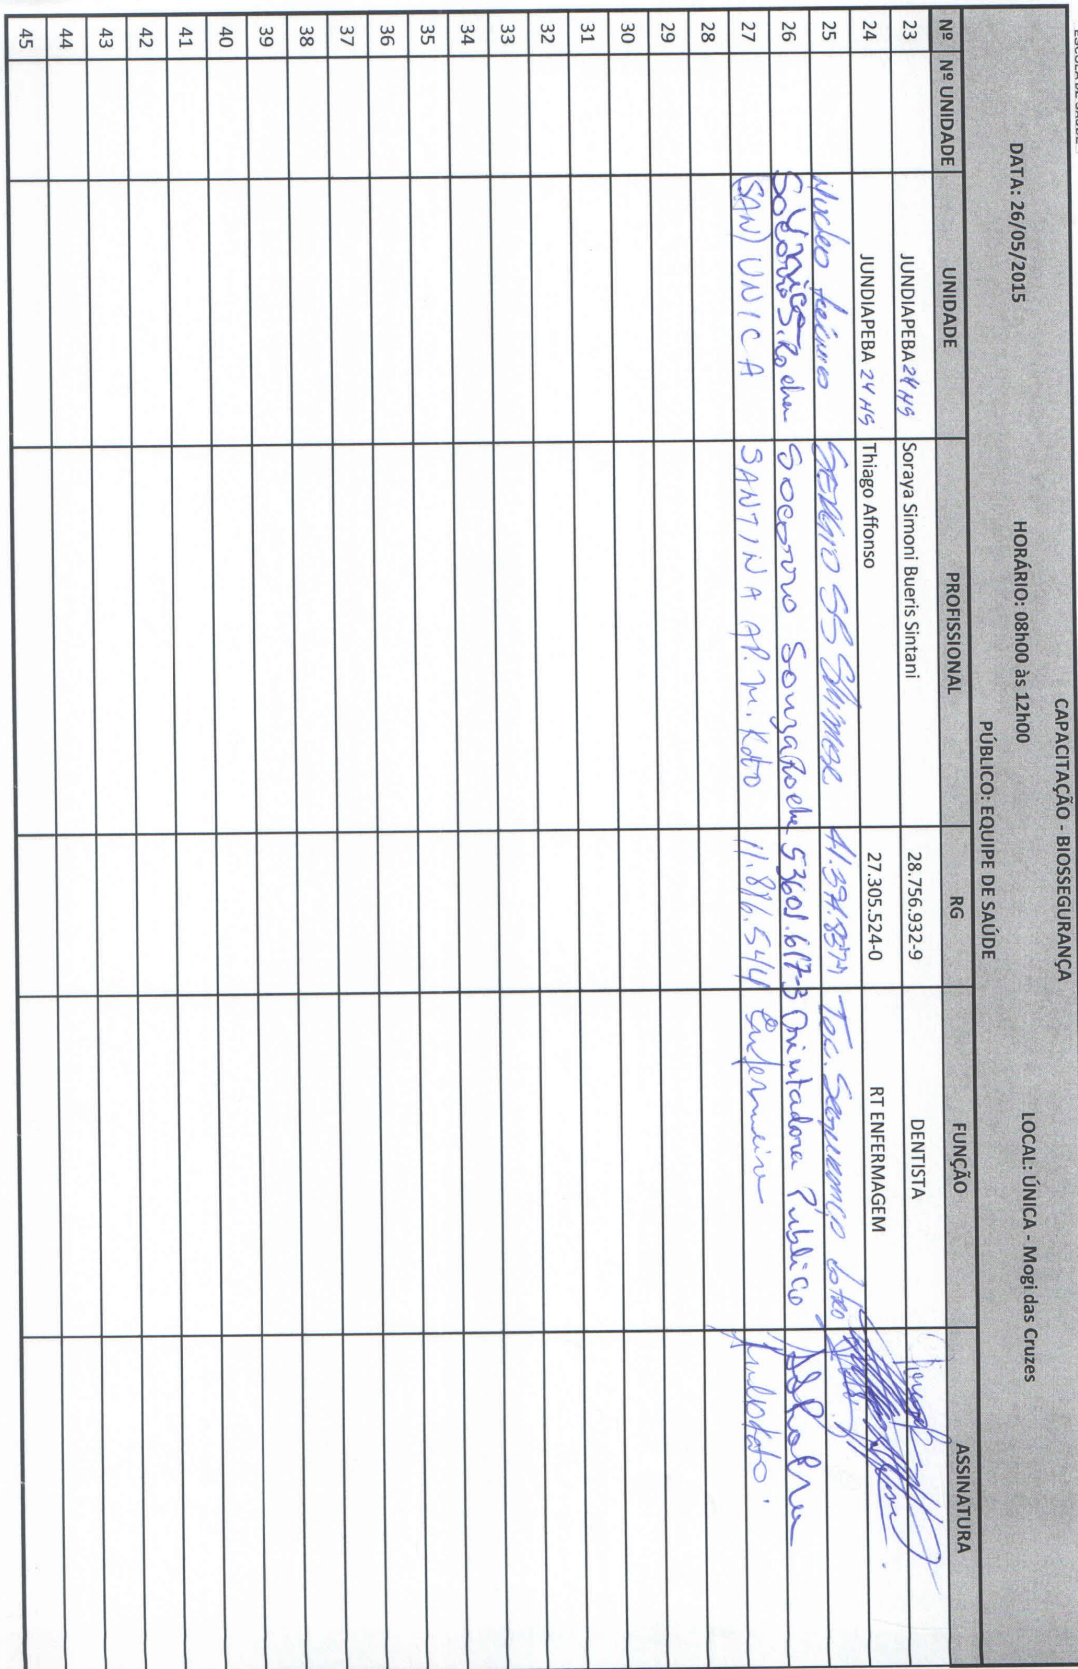 ESCOLA DE SAÚDE
CAPACITAÇÃO - BIOSSEGURANÇA
DATA: 26/05/2015 HORÁRIO: 08h00 às 12h00 LOCAL: ÚNICA - Mogi das Cruzes
PÚBLICO: EQUIPE DE SAÚDE
Nº Nº UNIDADE UNIDADE PROFISSIONAL RG FUNÇÃO ASSINATURA
23 JUNDIAPEBA 24 HS Soraya Simoni Bueris Sintani 28.756.932-9 DENTISTA
24 JUNDIAPEBA 24 HS Thiago Affonso 27.305.524-0 RT ENFERMAGEM
25 Nucleo Sergio
26 Socorro S. Rocha Socorro Souza Rocha 53601.617-3 Orientadora Publico
27 (SAN) UNICA SANTINA AP. M. Kato 11.886.544 Enfermeira
28
29
30
31
32
33
34
35
36
37
38
39
40
41
42
43
44
45